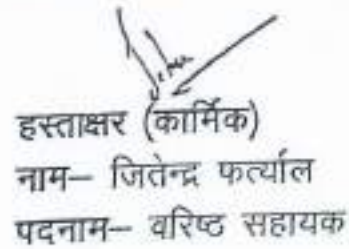 हस्ताक्षर (कार्मिक)
नाम– जितेन्द्र फर्त्याल
पदनाम– वरिष्ठ सहायक